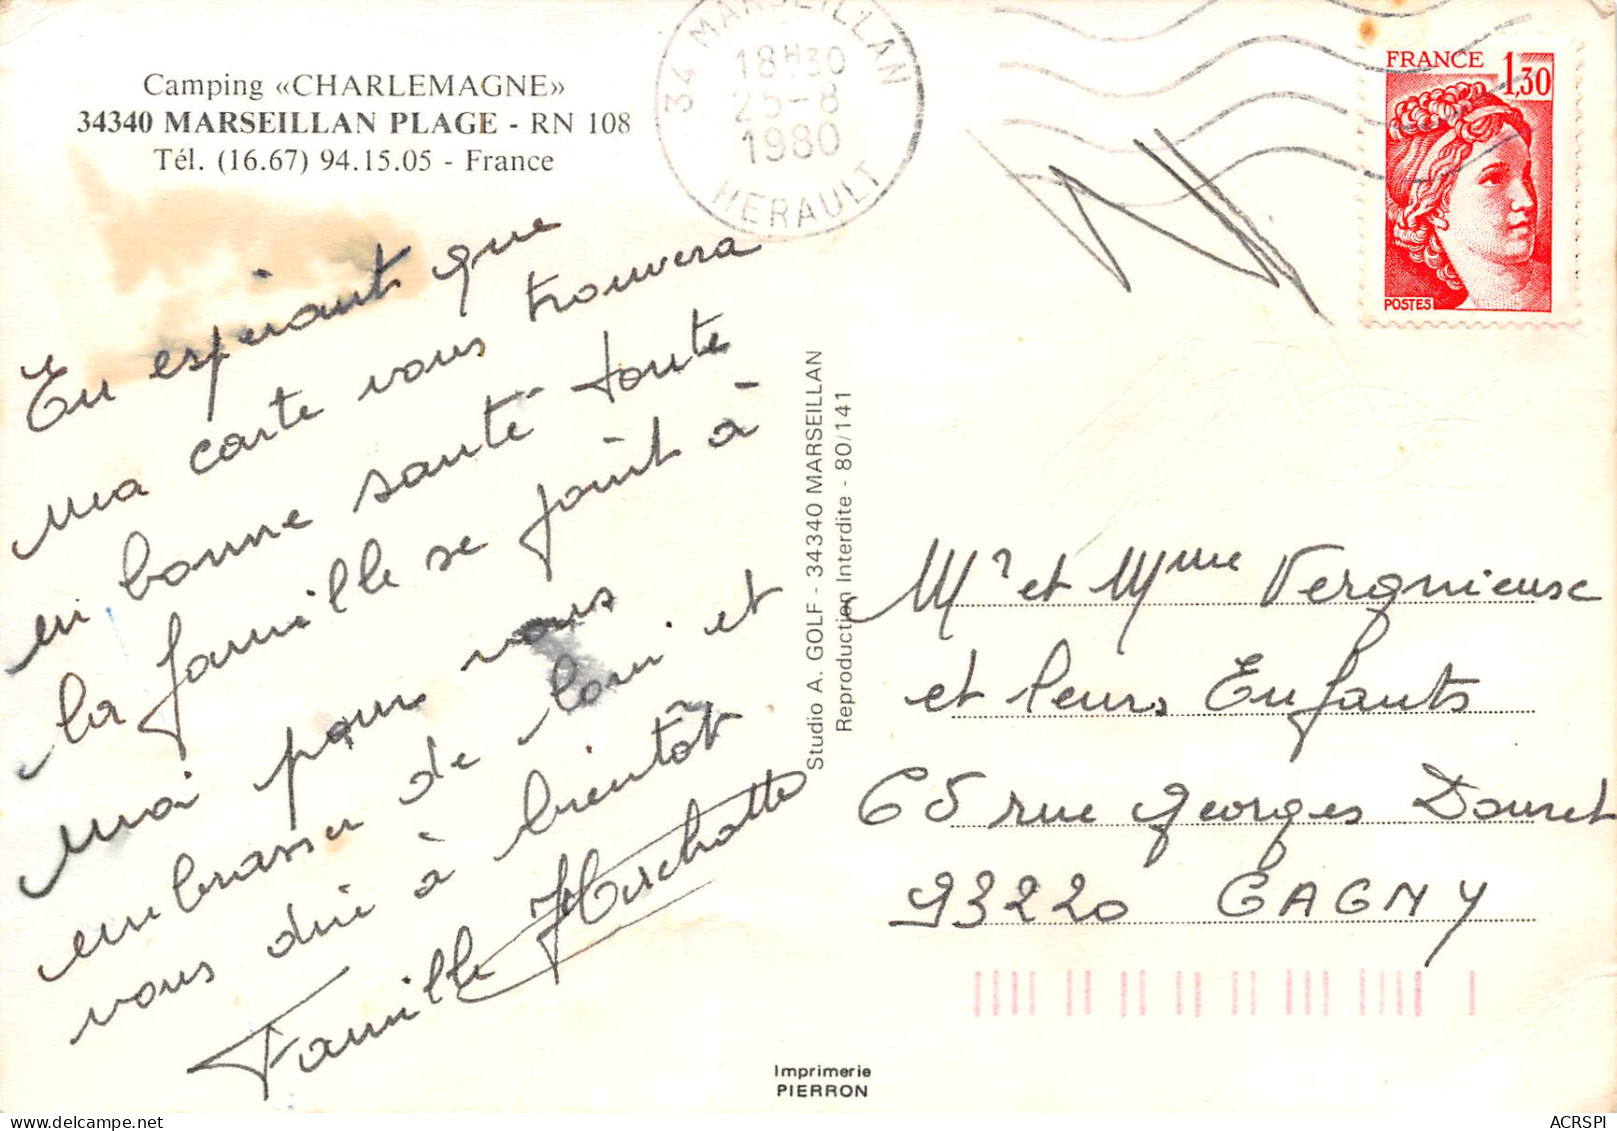 Camping «CHARLEMAGNE»
34340 MARSEILLAN PLAGE - RN 108
Tél. (16.67) 94.15.05 - France
34 MARSEILLAN
18H30
25-8
1980
HERAULT
FRANCE 1,30
POSTES
En espérant que
ma carte vous trouvera
en bonne santé toute
la famille se joint à
moi pour vous
embrasser de loin et
vous dire à bientôt
Famille
Studio A. GOLF - 34340 MARSEILLAN
Reproduction Interdite - 80/141
Mr et Mme Vergnieuse
et leurs Enfants
65 rue georges Douret
93220 GAGNY
Imprimerie
PIERRON
ACRSPI